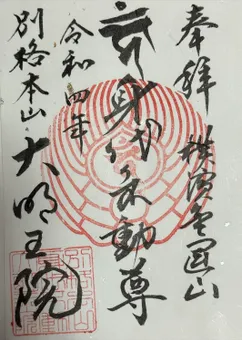 奉拝 横濱雲風山
身代不動尊
令和四年
別格本山 大明王院